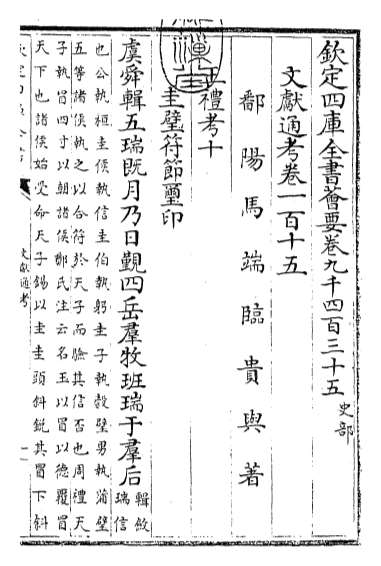 欽定四庫全書薈要卷九千四百三十五 史部
文獻通考卷一百十五
鄱陽馬端臨貴與著
王禮考十
圭璧符節璽印
虞舜輯五瑞既月乃日覲四岳羣牧班瑞于羣后
輯斂
瑞信
也公執桓圭侯執信圭伯執躬圭子執穀璧男執蒲璧
五等諸侯執之以合符於天子而驗其信否也周禮天
子執冒四寸以朝諸侯鄭氏注云名玉以冒以德覆冒
天下也諸侯始受命天子錫以圭圭頭斜銳其冒下斜
文獻通考
一